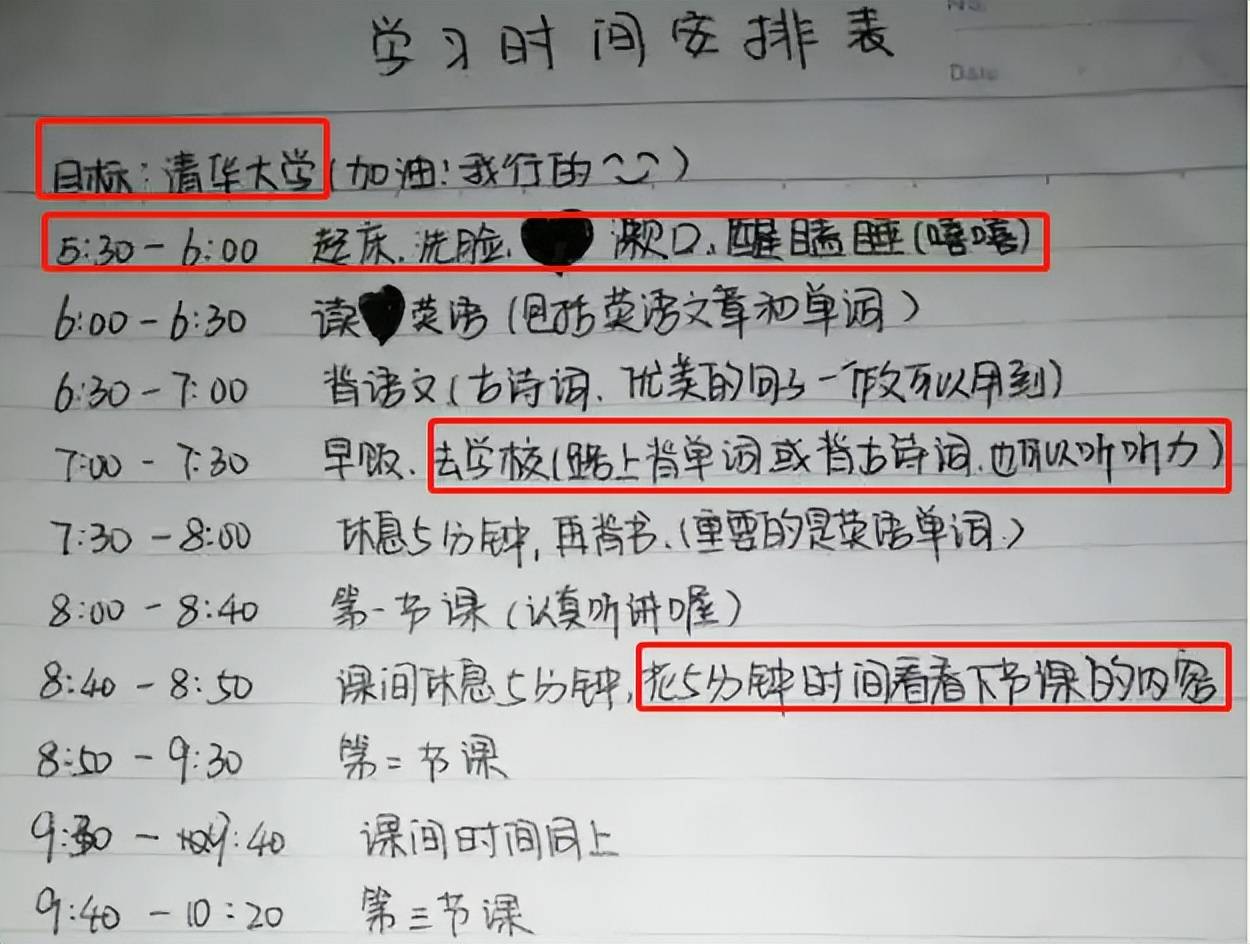 No.
Date
学习时间安排表
目标:清华大学(加油!我行的)
5:30-6:00 起床.洗脸. 漱口.醒瞌睡(嘻嘻)
6:00-6:30 读英语(包括英语文章和单词)
6:30-7:00 背语文(古诗词.优美的句子一作文可以用到)
7:00-7:30 早饭.去学校(路上背单词或背古诗词.也可以听听力)
7:30-8:00 休息5分钟,再背书.(重要的是英语单词.)
8:00-8:40 第一节课(认真听讲喔)
8:40-8:50 课间休息5分钟,花5分钟时间看看下节课的内容
8:50-9:30 第二节课
9:30-9:40 课间时间同上
9:40-10:20 第三节课